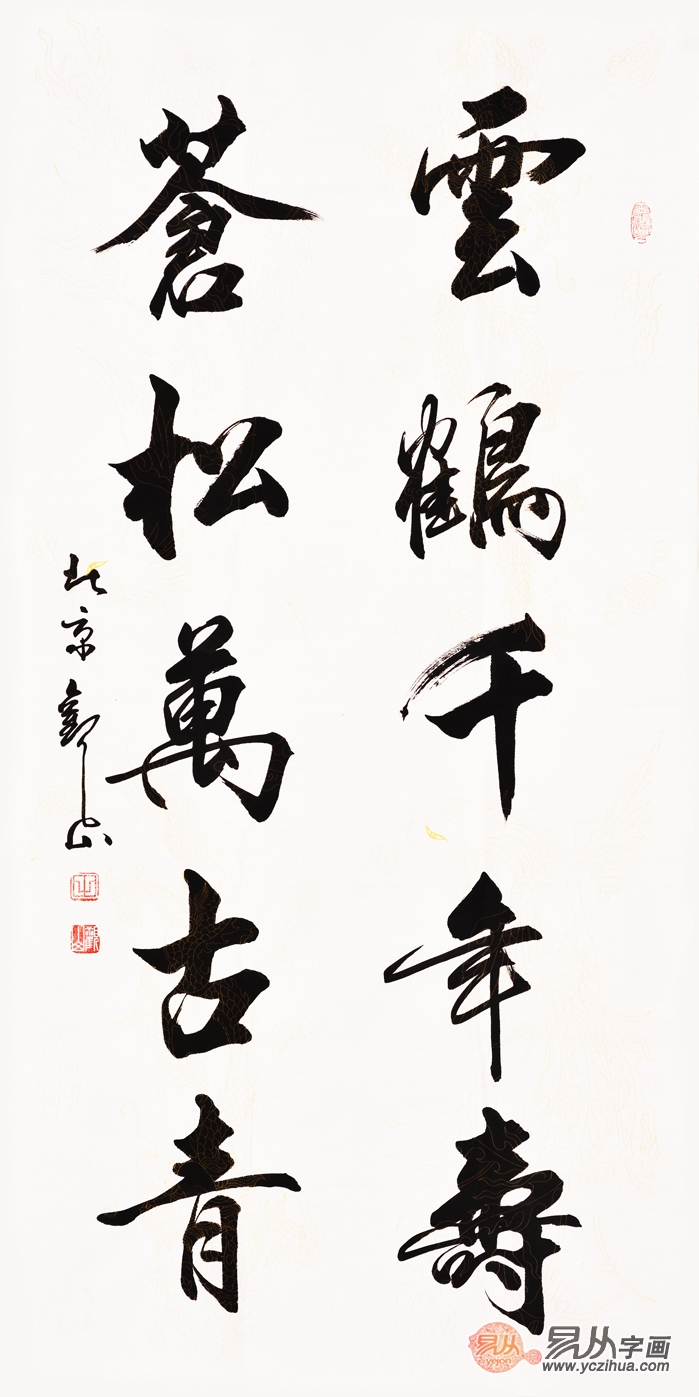 雲鶴千年壽
蒼松萬古青
北京觀山
易从字画
www.yczihua.com